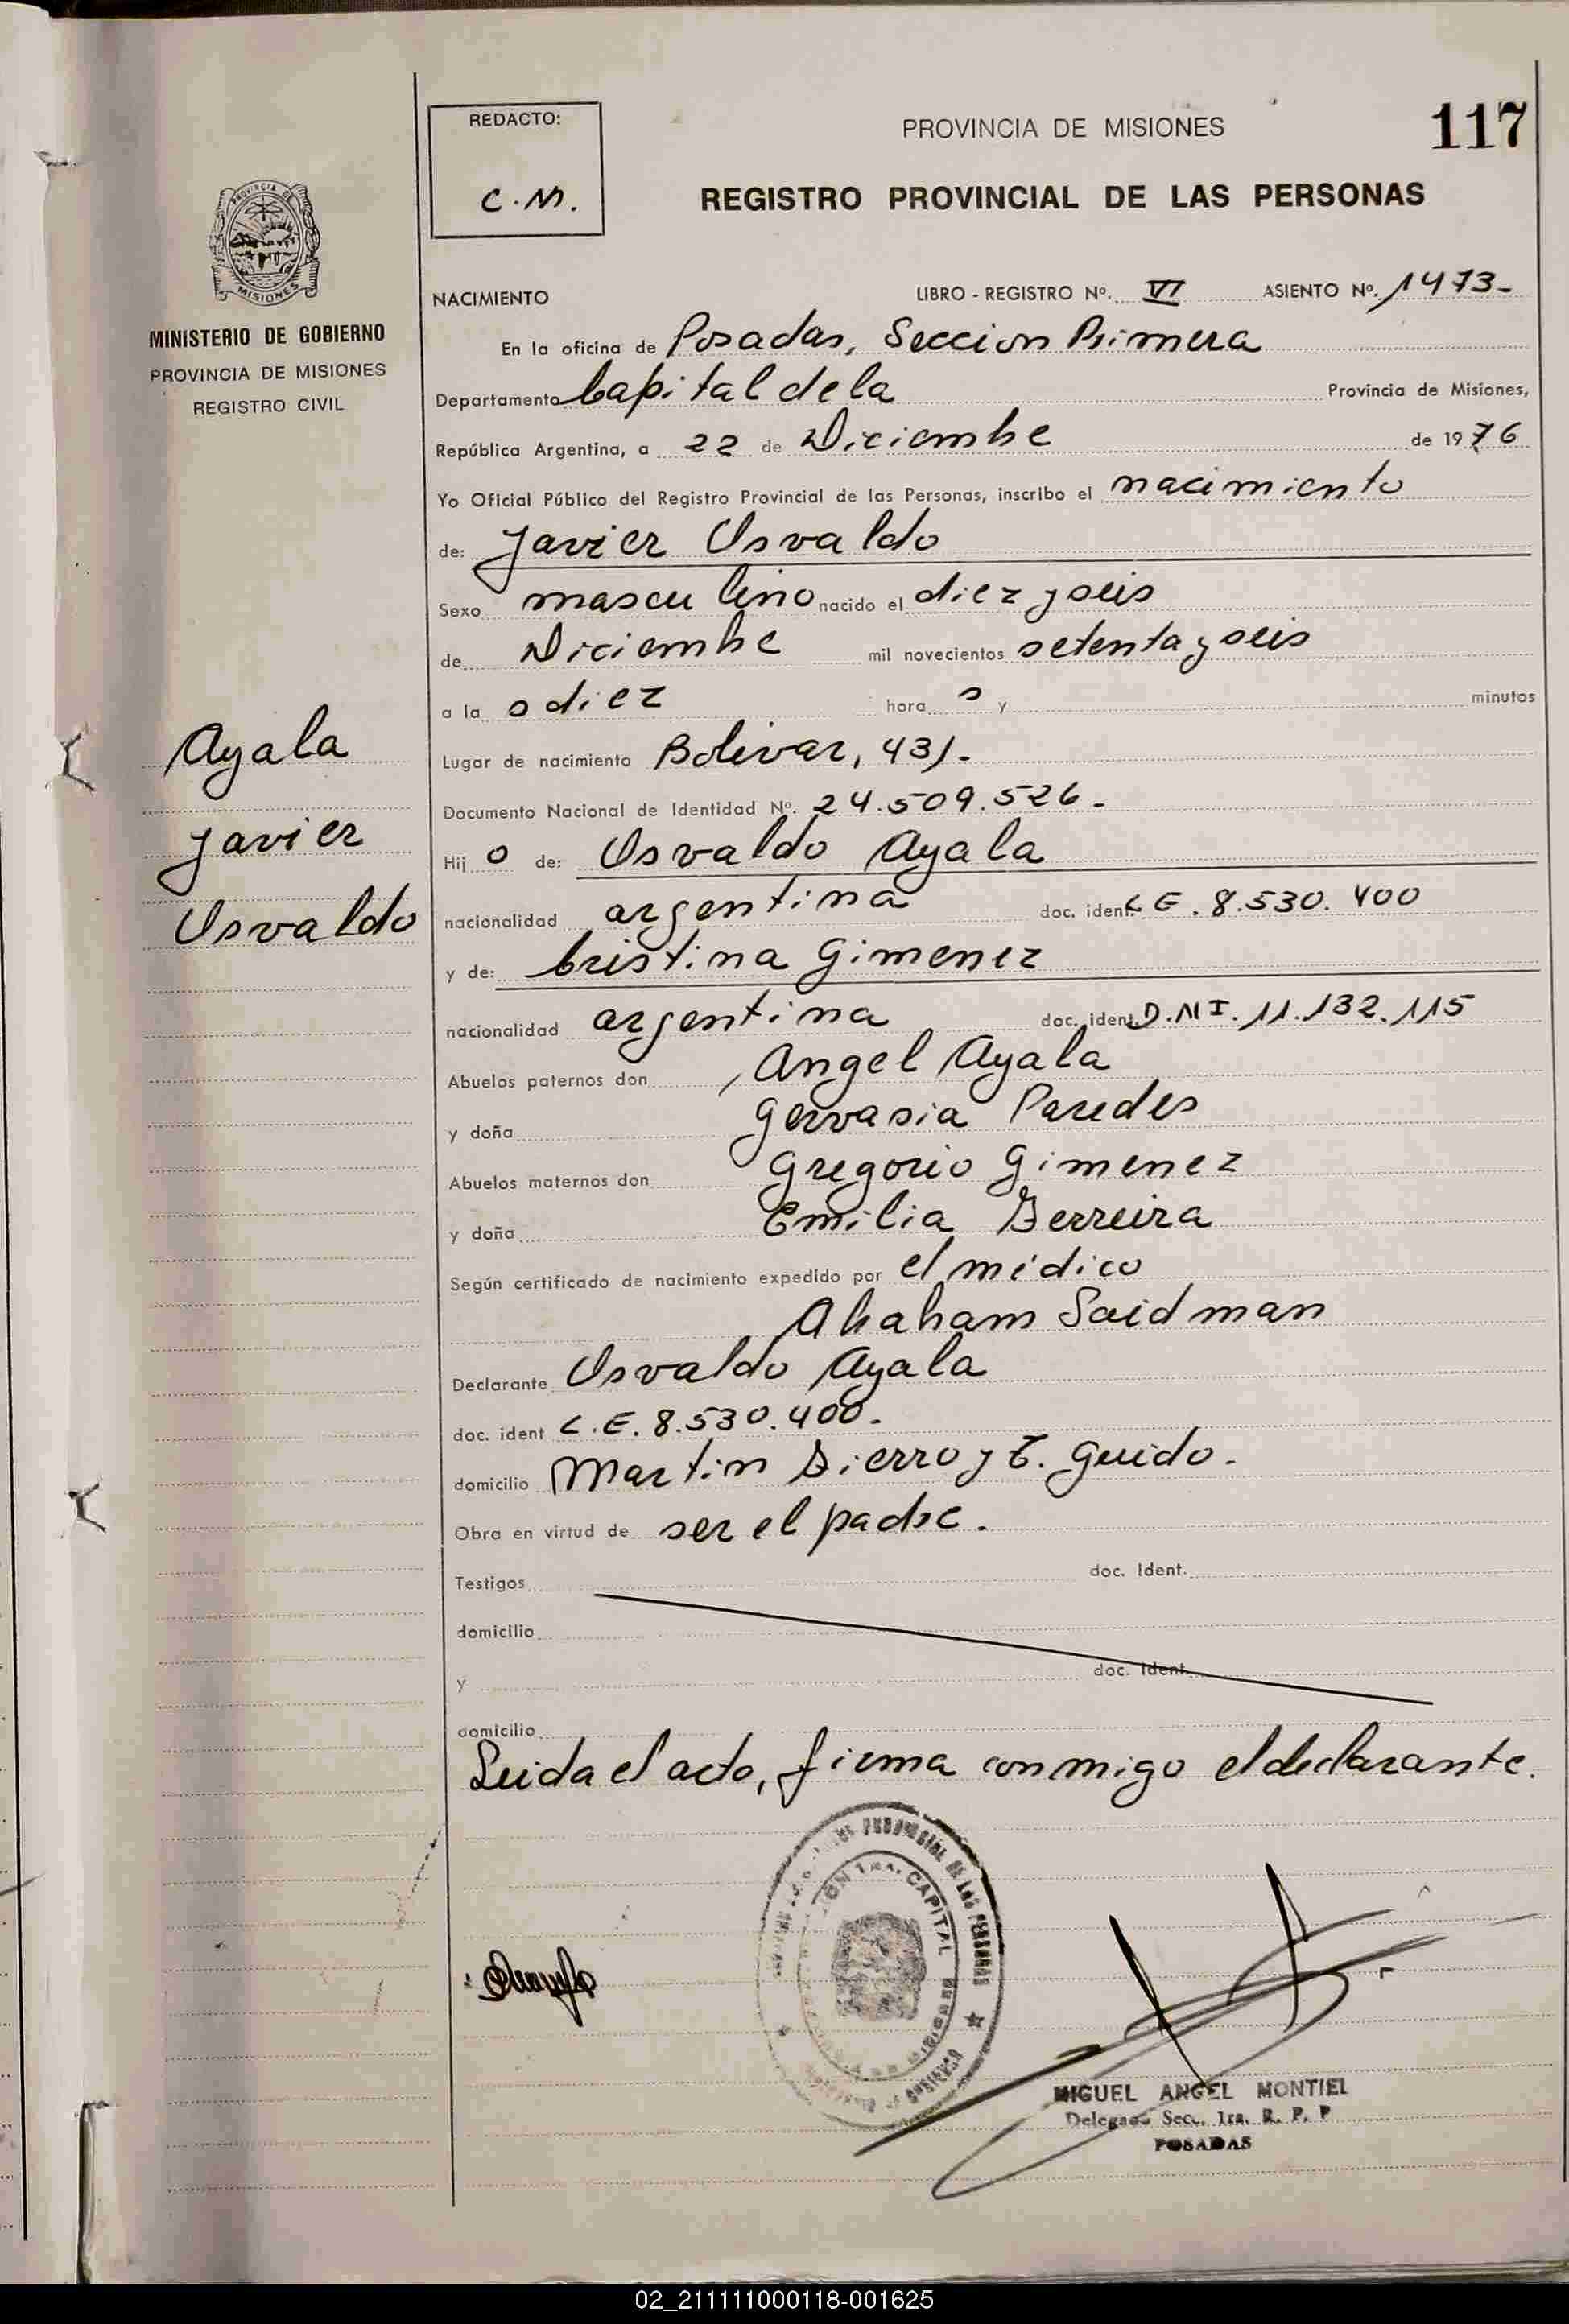 REDACTO:
C.M.
PROVINCIA DE MISIONES
117
REGISTRO PROVINCIAL DE LAS PERSONAS
MISIONES
MINISTERIO DE GOBIERNO
PROVINCIA DE MISIONES
REGISTRO CIVIL
NACIMIENTO LIBRO - REGISTRO Nº. VI ASIENTO Nº. 1473-
En la oficina de Posadas, Seccion Primera
Departamento Capital de la Provincia de Misiones,
República Argentina, a 22 de Diciembre de 1976
Yo Oficial Público del Registro Provincial de las Personas, inscribo el nacimiento
de: Javier Osvaldo
Sexo masculino nacido el diez y seis
de Diciembre mil novecientos setenta y seis
a la s diez hora s y minutos
Lugar de nacimiento Bolivar, 431.-
Documento Nacional de Identidad Nº. 24.509.526.-
Hij o de: Osvaldo Ayala
nacionalidad argentina doc. ident. L E . 8.530. 400
y de: Cristina Gimenez
nacionalidad argentina doc. ident. D.N I. 11.132.115
Abuelos paternos don Angel Ayala
y doña Gervasia Paredes
Abuelos maternos don Gregorio Gimenez
y doña Emilia Ferreira
Según certificado de nacimiento expedido por el médico
Abraham Saidman
Declarante Osvaldo Ayala
doc. ident L.E. 8.530.400.-
domicilio Martin Fierro y T. Guido.-
Obra en virtud de ser el padre.
Testigos doc. Ident.
domicilio
y doc. Ident.
domicilio
Leida el acto, firma conmigo el declarante.
Ayala
Javier
Osvaldo
PROVINCIAL DE LAS PERSONAS
CAPITAL
MIGUEL ANGEL MONTIEL
Delegado Secc. 1ra. R. P. P
POSADAS
02_211111000118-001625